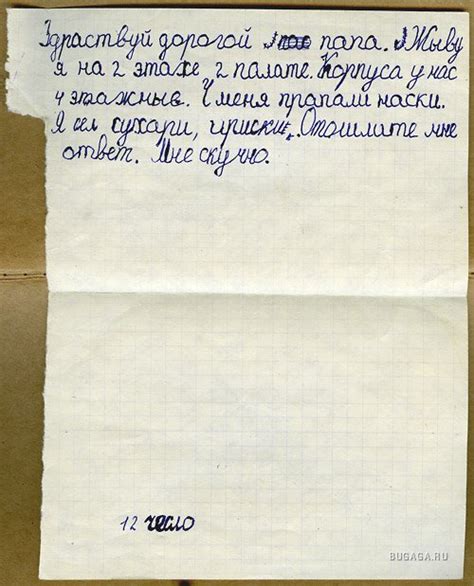 Здраствуй дорогой папа. Жыву
я на 2 этаже 2 палате. Корпуса у нас
4 этажные. У меня прапали наски.
Я сел сухари, ириски. Отошлите мне
ответ. Мне скучно.
12 число
BUGAGA.RU